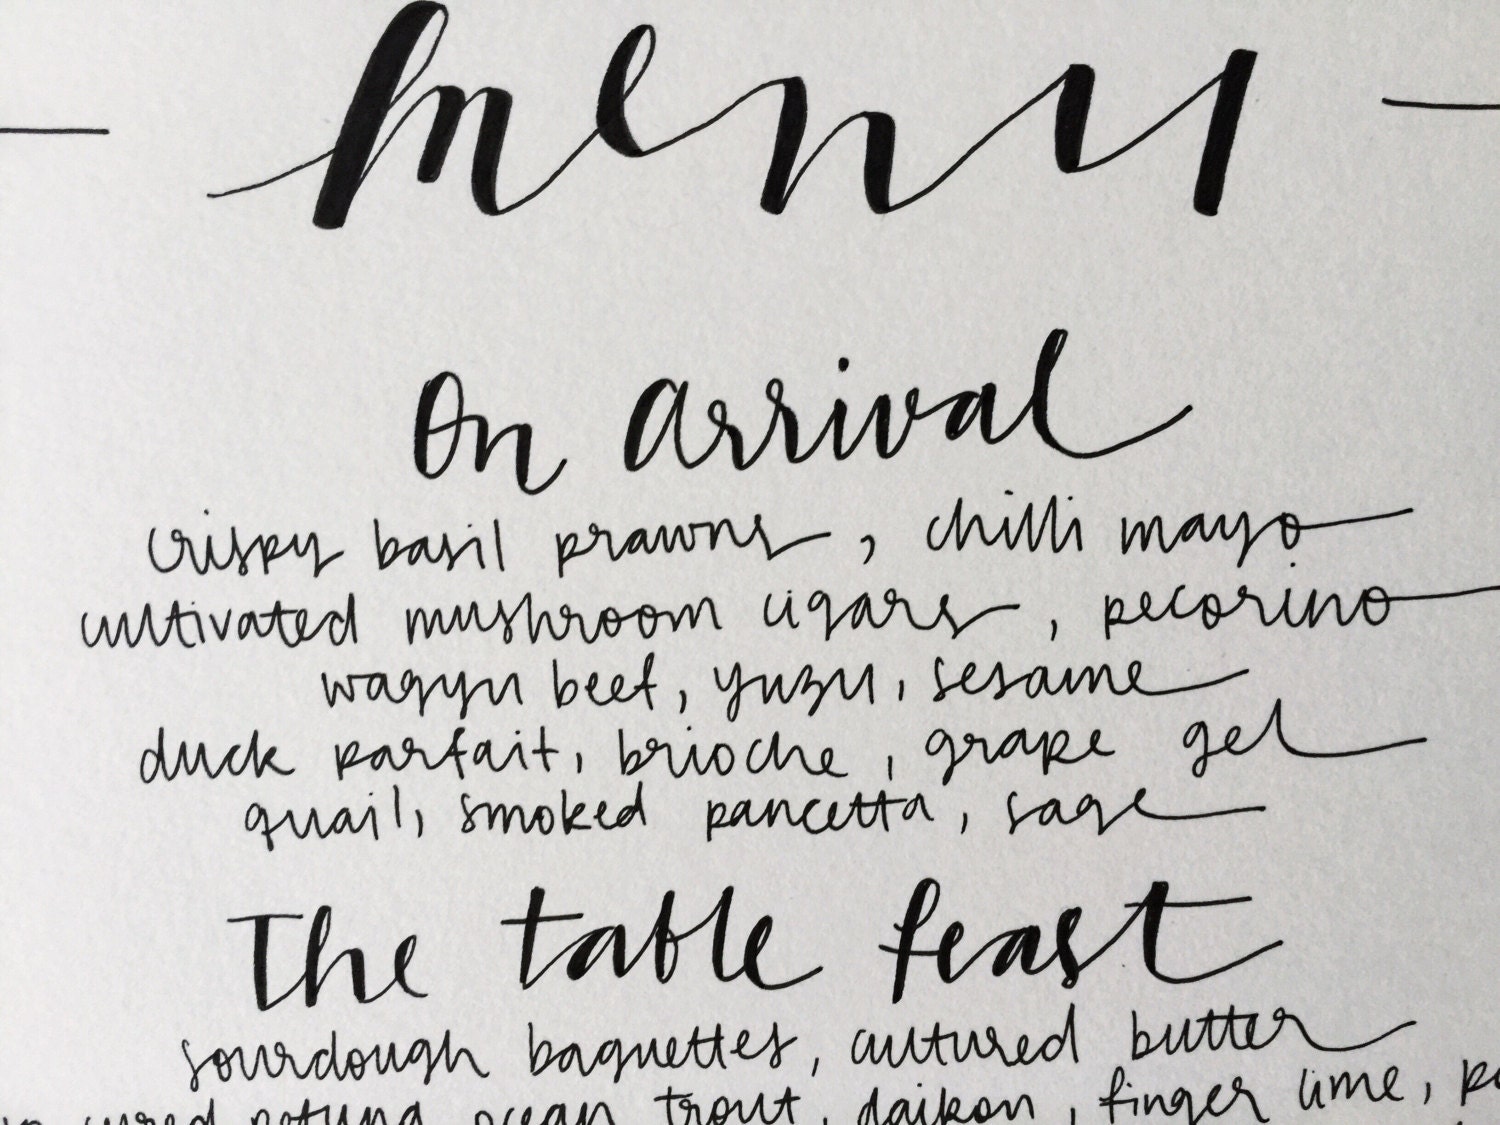 menu
On arrival
crispy basil prawns, chilli mayo
cultivated mushroom cigars, pecorino
wagyu beef, yuzu, sesame
duck parfait, brioche, grape gel
quail, smoked pancetta, sage
The table feast
sourdough baguettes, cultured butter
cured petuna ocean trout, daikon, finger lime,